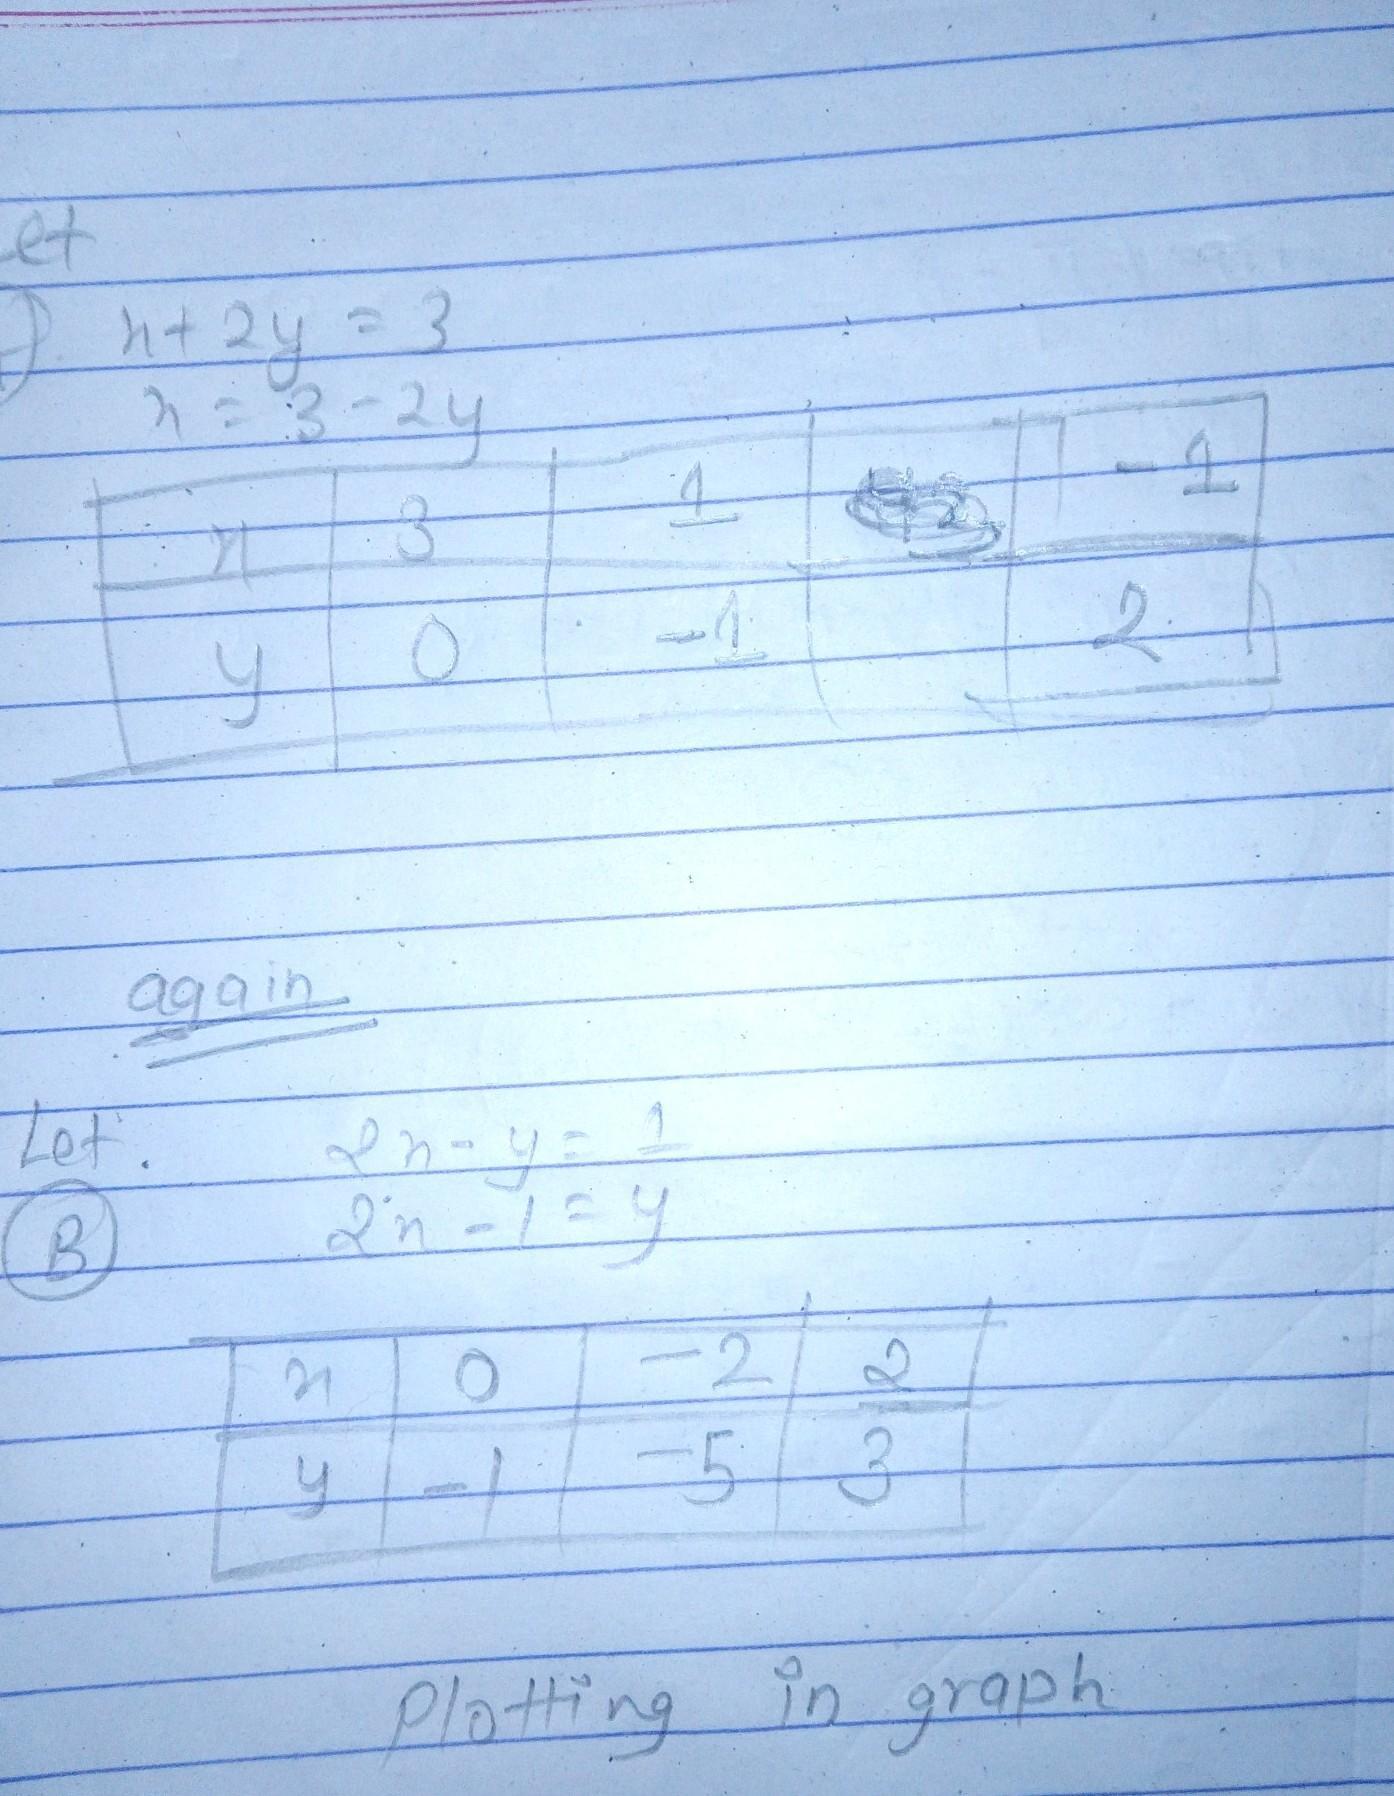 Let
x + 2y = 3
x = 3 - 2y
x 3 1 -1
y 0 -1 2
again
Let.
2x - y = 1
B 2x - 1 = y
x 0 -2 2
y -1 -5 3
Plotting in graph